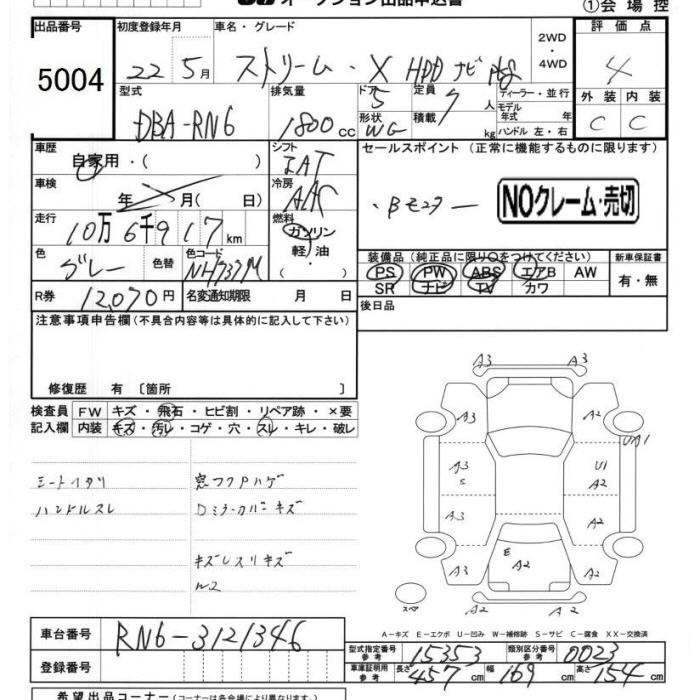 オークション出品申込書
①会場控
出品番号 初度登録年月 車名・グレード 2WD・4WD 評価点
5004 22 5月 ストリーム・X HDD ナビ 4
型式 排気量 ドア 5 定員 7人 ディーラー・並行 外装 内装
DBA-RN6 1800cc 形状 WG 積載 kg モデル年式 年 ハンドル 左・右 C C
車歴 自家用・( ) シフト IAT セールスポイント (正常に機能するものに限ります)
車検 年 月( 日) 冷房 AAC
NOクレーム・売切
走行 10万6千917km 燃料 ガソリン・軽油・
色 グレー 色替 色コード NH737M
装備品 (純正品に限り○をつけてください) 新車保証書
PS PW ABS エアB AW 有・無
SR ナビ TV カワ
R券 12,070円 名変通知期限 月 日
後日品
注意事項申告欄 (不具合内容等は具体的に記入して下さい)
修復歴 有 [箇所 ]
検査員記入欄 FW キズ・飛石・ヒビ割・リペア跡・×要
内装 キズ・汚レ・コゲ・穴・スレ・キレ・破レ
シートイタリ 窓フクPハゲ
ハンドルスレ Dミラーカバーキズ
キズレスリキズ
W2
A3 A3
A3 A2
UA1
A3 S U1 A2
A3 A2
A3 E A2 A2
スペア
A-キズ E-エクボ U-凹み W-補修跡 S-サビ C-腐食 XX-交換済
車台番号 RN6-3121346
登録番号
型式指定番号 参考 15353 類別区分番号 参考 0023
車庫証明用 参考 長さ 457cm 幅 169cm 高さ 154cm
希望出品コーナー (コーナーは各会場により異なります)